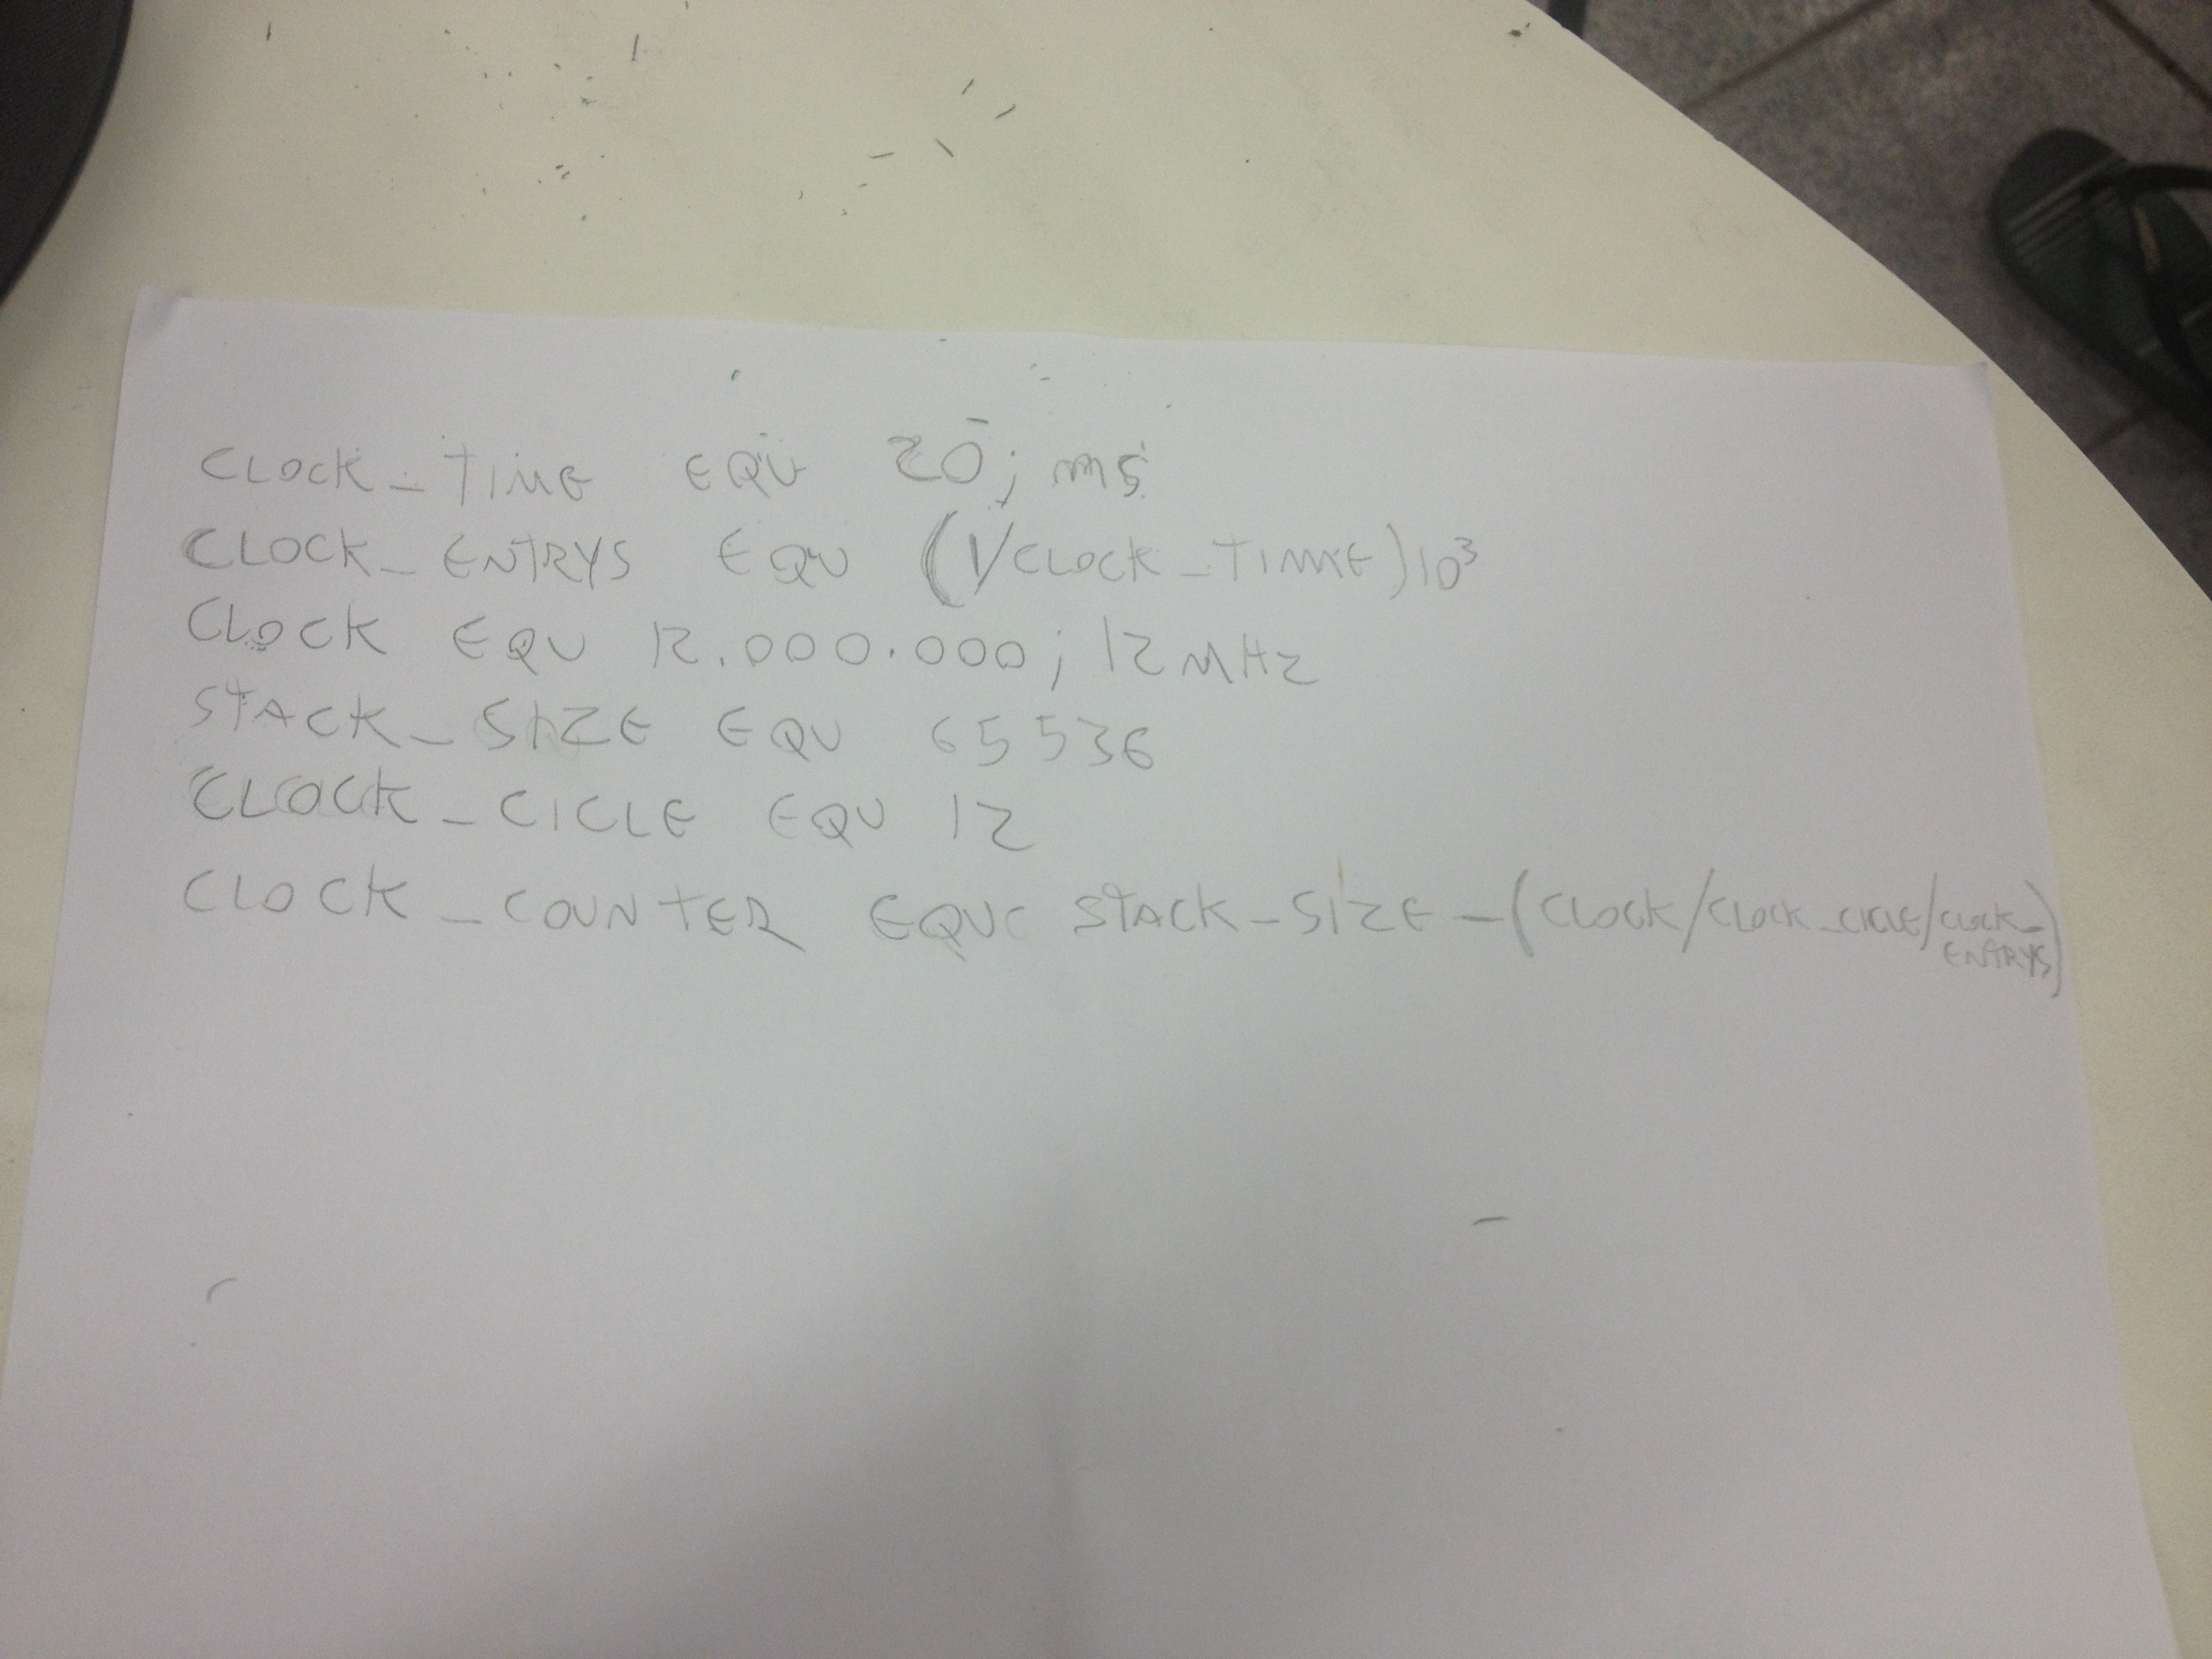 CLOCK_TIME EQU 20; ms
CLOCK_ENTRYS EQU (1/CLOCK_TIME)10³
CLOCK EQU 12.000.000; 12 MHz
STACK_SIZE EQU 65536
CLOCK_CICLE EQU 12
CLOCK_COUNTER EQU STACK_SIZE - (CLOCK/CLOCK_CICLE/CLOCK_
ENTRYS)